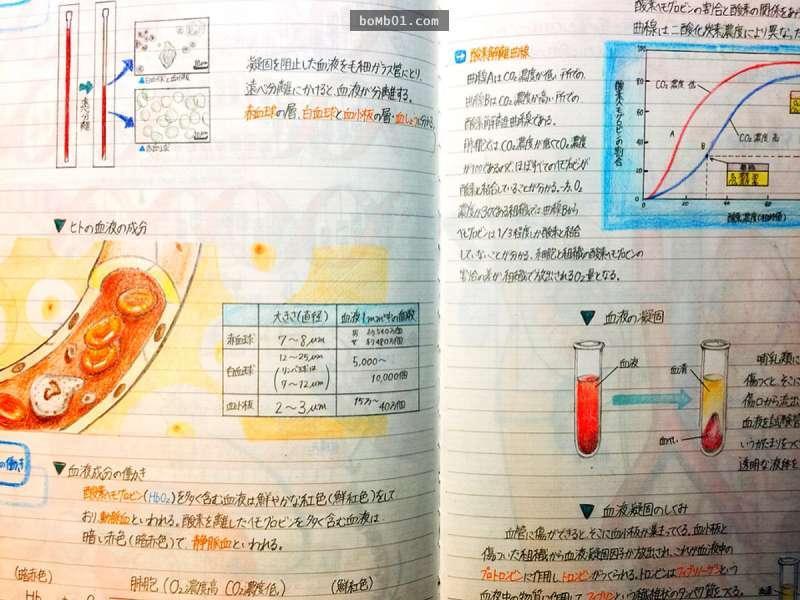 boMb01.com
遠心分離
凝固を阻止した血液をも細ガラス管にとり、
遠心分離にかけると、血液が分離する。
赤血球の層、白血球と血小板の層・血しょう
▼ヒトの血液の成分
大きさ(直径) 血液1mm³中の個数
赤血球 7〜8μm
白血球 12〜25μm (リンパ球は 7〜12μm) 5,000〜 10,000個
血小板 2〜3μm 15万〜 40万個
の働き
▼血液成分の働き
酸素ヘモグロビン(HbO₂)を多く含む血液は鮮やかな紅色(鮮紅色)をして
おり動脈血といわれる。酸素を離したヘモグロビンを多く含む血液は
暗い赤色(暗赤色)で、静脈血といわれる。
(暗赤色) 肺胞(O₂濃度高 CO₂濃度低) (鮮紅色)
Hb
酸素ヘモグロビンの割合と酸素の関係をあ
曲線は二酸化炭素濃度により異なった
酸素解離曲線
曲線AはCO₂濃度が低い所での、
曲線BはCO₂濃度が高い所での
酸素解離曲線である。
酸素と結合していることが分かる。一方、O₂
濃度が30である組織では曲線Bから
ヘモグロビンは1/3程度しか酸素と結合
していないことが分かる。細胞と組織の酸素ヘモグロビンの
割合の差が組織で放出されるO₂量となる。
酸素ヘモグロビンの割合
100
80
40
0
20
40
60
CO₂濃度 低
CO₂濃度 高
A
B
酸素濃度(相対値)
▼血液の凝固
血液
血清
血ぺい
哺乳類に
傷つくと、そこに
傷口から流出
血液を試験管
いうかたまりをつく
透明な液体を
▼血液凝固のしくみ
血管に傷ができると、そこに血小板が集まってくる。血小板と
傷ついた組織から血液凝固因子が放出され、これが血液中の
プロトロンビンに作用し、トロンビンがつくられる。トロンビンはフィブリノーゲンという
血液中の物質に作用してフィブリンという繊維状のタンパク質をつくる。